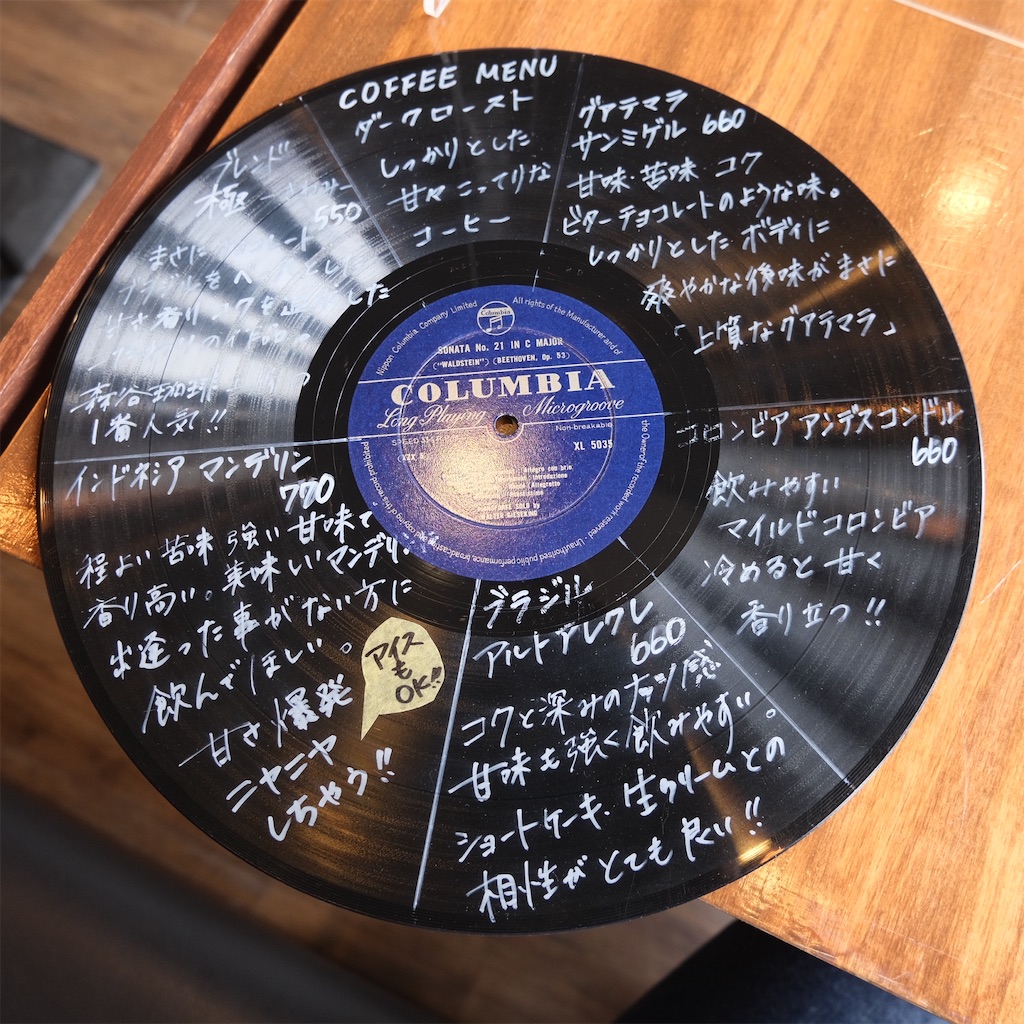 COFFEE MENU
ダークロースト
しっかりとした
甘々こってりな
コーヒー
グアテマラ
サンミゲル 660
甘味・苦味・コク
ビターチョコレートのような味。
しっかりとした ボディに
爽やかな後味がまさに
「上質なグアテマラ」
コロンビア アンデスコンドル
660
飲みやすい
マイルドコロンビア
冷めると甘く
香り立つ!!
ブラジル
アルトアレグレ
660
コクと深みのナッツ感
甘味も強く飲みやすい。
ショートケーキ、生クリームとの
相性がとても良い!!
インドネシア マンデリン
770
程よい苦味 強い甘味で
香り高い。美味しいマンデリン
出逢った事がない方に
飲んでほしい。
甘さ爆発
ニヤニヤ
しちゃう!!
アイス
も
OK!!
ブレンド
極
550
まさに
森谷珈琲
1番人気!!
Nippon Columbia Company Limited
All rights of the Manufacturer and of
the Owner of the recorded work reserved
Unauthorised public performance, broadcasting
copying of this record prohibited
Columbia
SONATA No. 21 IN C MAJOR
("WALDSTEIN") (BEETHOVEN, Op. 53)
COLUMBIA
Long Playing Microgroove
Non-breakable
XL 5035
Allegro con brio
Introduzione
Allegretto
SOLO by
WALTER GIESEKING